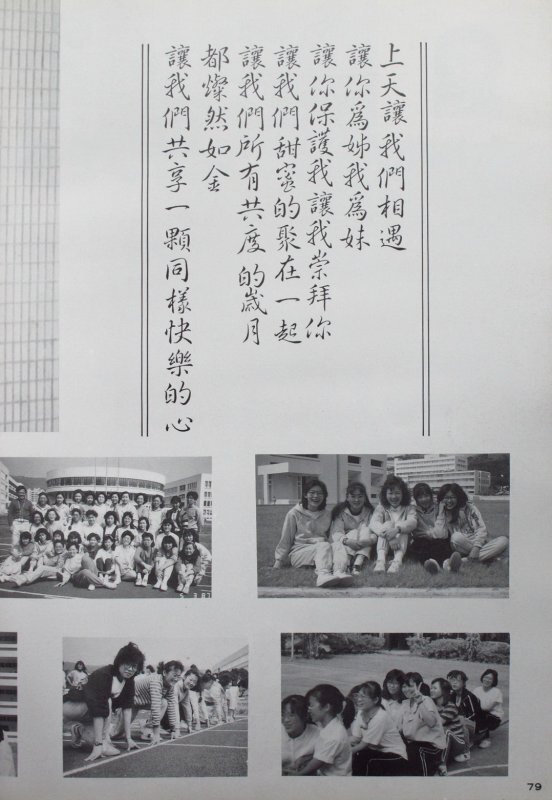 上天讓我們相遇
讓你為姊我為妹
讓你保護我讓我崇拜你
讓我們甜蜜的聚在一起
讓我們所有共度的歲月
都燦然如金
讓我們共享一顆同樣快樂的心
5 3 87
79